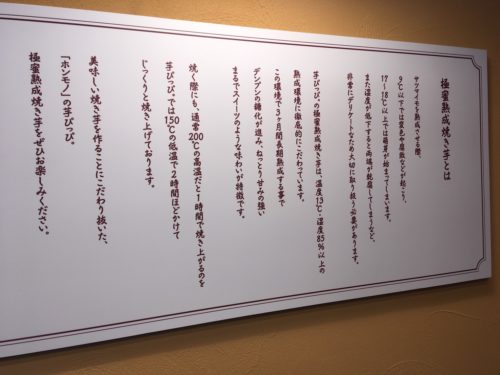 極蜜熟成焼き芋とは
サツマイモを熟成させる際、
9℃以下では変色や腐敗などが起こり、
17~18℃以上では萌芽が始まってしまいます。
また湿度が低下すると両端が乾腐してしまうなど、
非常にデリケートなため大切に取り扱う必要があります。
芋ぴっぴ。の極蜜熟成焼き芋は、温度13℃・湿度85%以上の
熟成環境に徹底的にこだわっています。
この環境で3ヶ月間長期熟成する事で
デンプンの糖化が進み、ねっとり甘みの強い
まるでスイーツのような味わいが特徴です。
焼く際にも、通常200℃の高温だと1時間で焼き上がるのを
芋ぴっぴ。では150℃の低温で2時間ほどかけて
じっくりと焼き上げております。
美味しい焼き芋を作ることにこだわり抜いた、
「ホンモノ」の芋ぴっぴ。
極蜜熟成焼き芋をぜひお楽しみください。